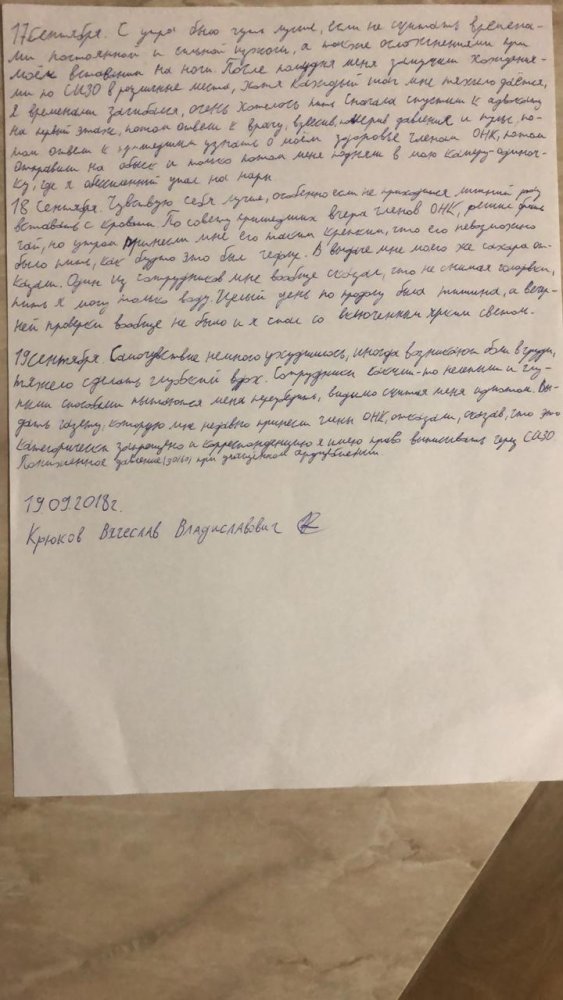 17 Сентября. С утра было чуть лучше, если не считать времена-
ми постоянной и сильной изжоги, а также осложнениями при
моём вставании на ноги. После полудня меня замучили хождения-
ми по СИЗО в различные места, хотя каждый шаг мне тяжело даётся,
я временами загибался, очень хотелось пить. Сначала спустили к адвокату
на первый этаж, потом отвели к врачу, взвесив, померив давление и пульс, по-
том отвели к пришедшим узнать о моём здоровье членам ОНК, потом
отправили на обыск и только потом меня подняли в мою камеру-одиноч-
ку, где я обессиленный упал на нары.
18 Сентября. Чувствую себя лучше, особенно если не приходится лишний раз
вставать с кровати. По совету пришедших вчера членов ОНК, решил
чай, но утром принесли мне его таким крепким, что его невозможно
было пить, как будто это был чефир. В выдаче мне моего же сахара от-
казали. Один из сотрудников мне вообще сказал, что не снимая голодовки,
пить я могу только воду. Целый день по продолу была тишина, а вечер-
ней проверки вообще не было и я спал со включенным ярким светом.
19 Сентября. Самочувствие немного ухудшилось, иногда возникают боли в груди,
тяжело сделать глубокий вдох. Сотрудники какими-то нелепыми и глу-
пыми способами пытаются меня переубедить, видимо считая меня идиотом. Вы-
дать газету, которую мне недавно принесли члены ОНК, отказали, сказав, что это
категорически запрещено и корреспонденцию я имею право выписывать через СИЗО.
Пониженное давление (90/60) при учащённом сердцебиении
19.09.2018г.
Крюков Вячеслав Владиславович